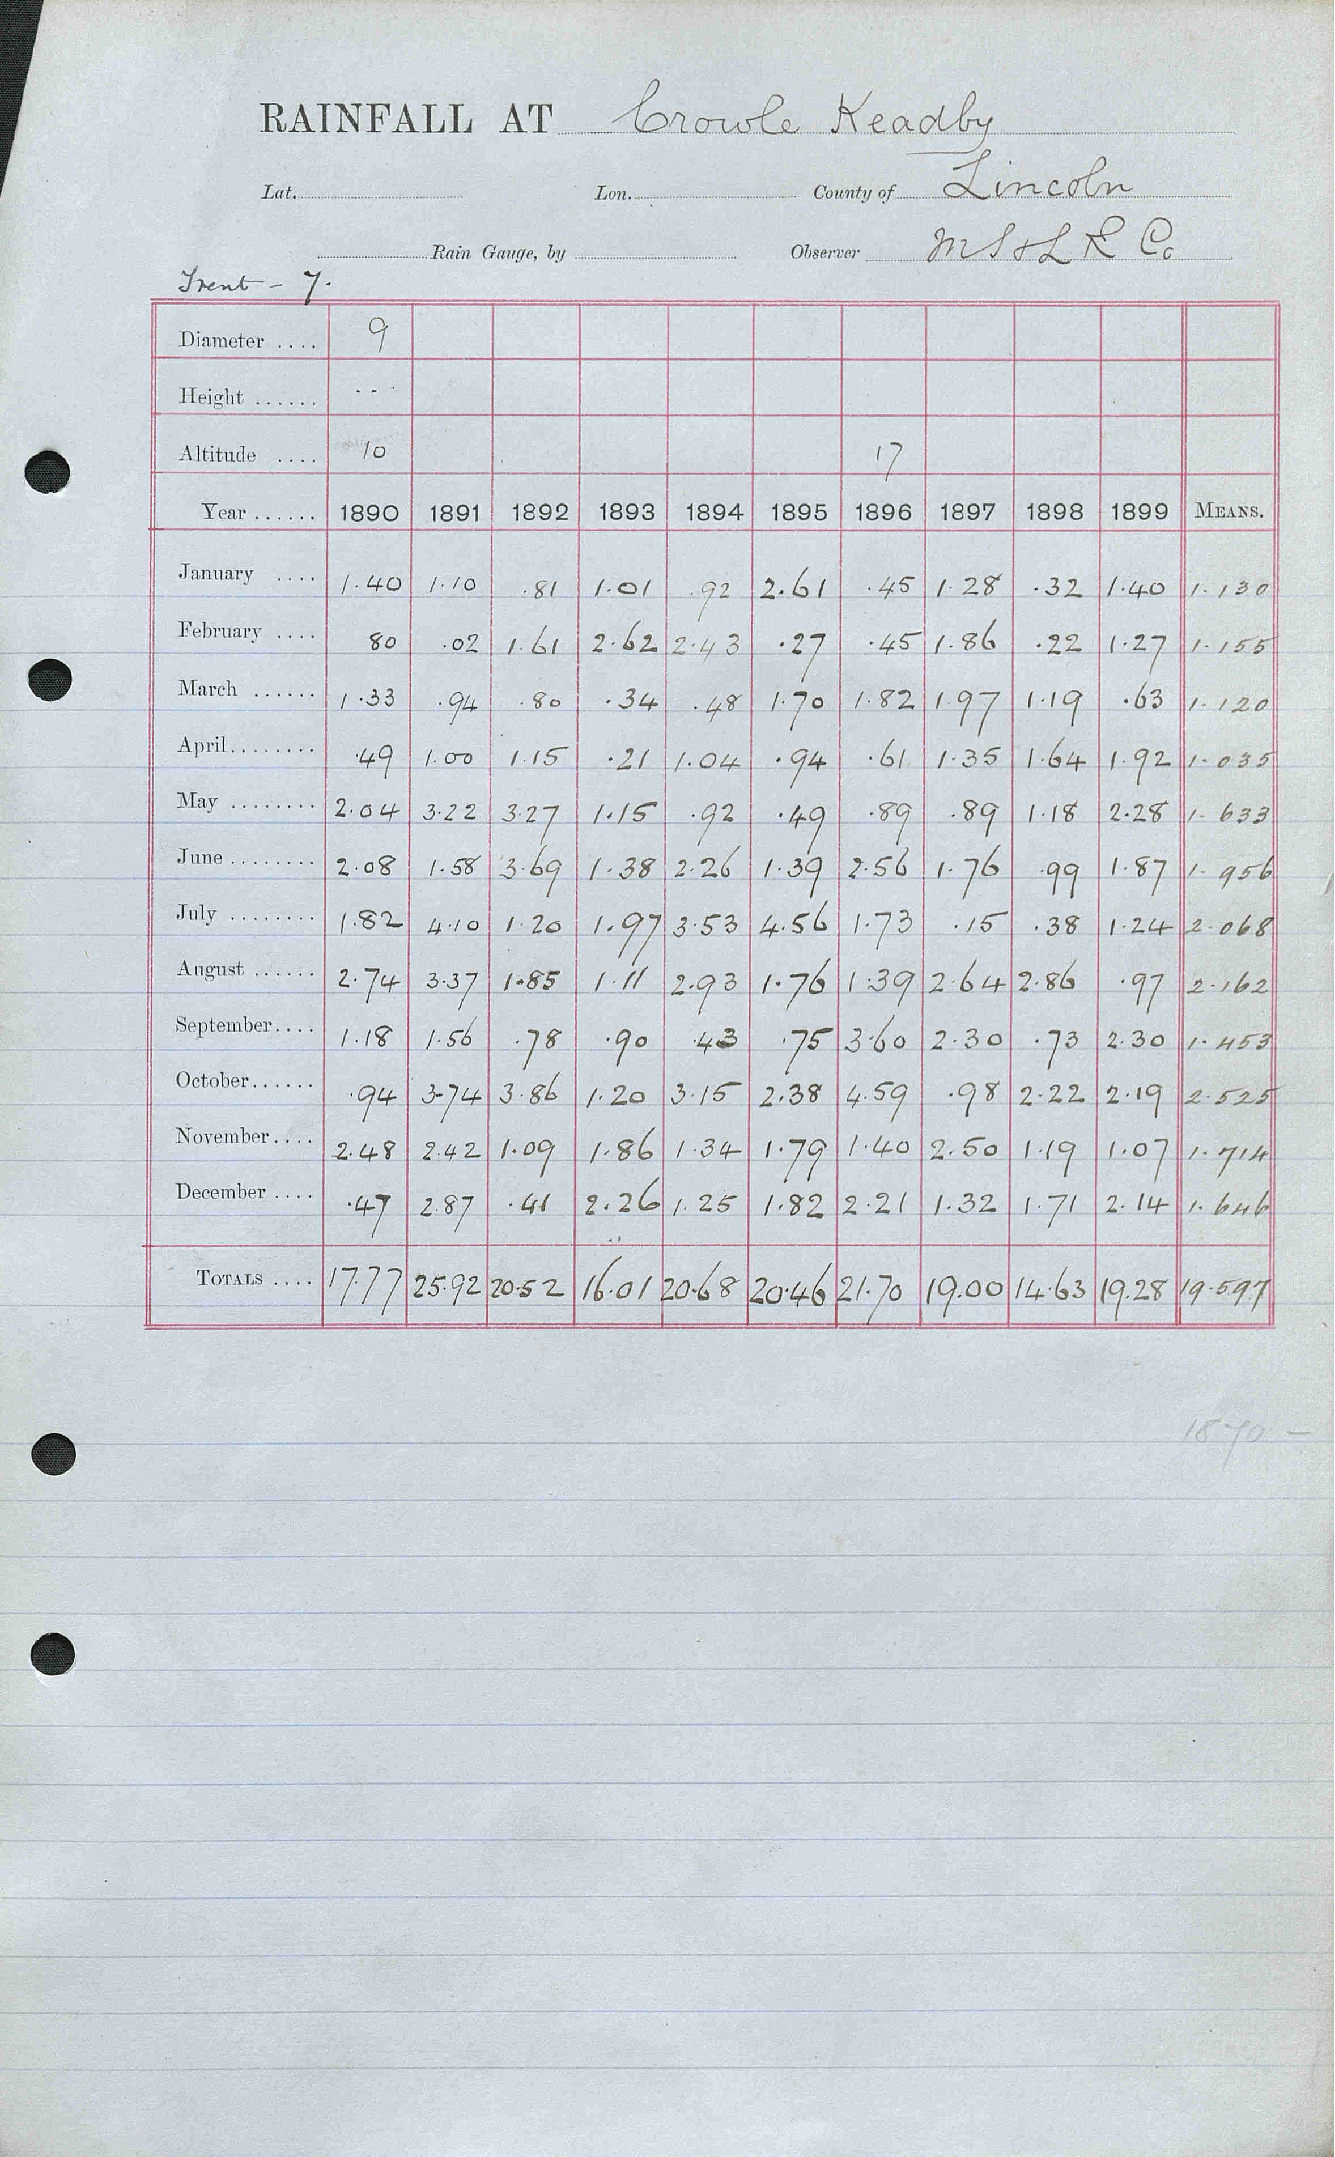 RAINFALL AT Crowle Keadby
Lat. Lon. County of Lincoln
Rain Gauge, by Observer M S & L R Co
Trent - 7.
Diameter .... 9
Height ...... - - -
Altitude .... 10 17
Year ...... 1890 1891 1892 1893 1894 1895 1896 1897 1898 1899 MEANS.
January .... 1.40 1.10 .81 1.01 .92 2.61 .45 1.28 .32 1.40 1.130
February .... 80 .02 1.61 2.62 2.43 .27 .45 1.86 .22 1.27 1.155
March ...... 1.33 .94 .80 .34 .48 1.70 1.82 1.97 1.19 .63 1.120
April........ .49 1.00 1.15 .21 1.04 .94 .61 1.35 1.64 1.92 1.035
May ........ 2.04 3.22 3.27 1.15 .92 .49 .89 .89 1.18 2.28 1.633
June ........ 2.08 1.58 3.69 1.38 2.26 1.39 2.56 1.76 .99 1.87 1.956
July ........ 1.82 4.10 1.20 1.97 3.53 4.56 1.73 .15 .38 1.24 2.068
August ...... 2.74 3.37 1.85 1.11 2.93 1.76 1.39 2.64 2.86 .97 2.162
September.... 1.18 1.56 .78 .90 .43 .75 3.60 2.30 .73 2.30 1.453
October...... .94 3.74 3.86 1.20 3.15 2.38 4.59 .98 2.22 2.19 2.525
November.... 2.48 2.42 1.09 1.86 1.34 1.79 1.40 2.50 1.19 1.07 1.714
December .... .47 2.87 .41 2.26 1.25 1.82 2.21 1.32 1.71 2.14 1.646
TOTALS .... 17.77 25.92 20.52 16.01 20.68 20.46 21.70 19.00 14.63 19.28 19.597
1870 -